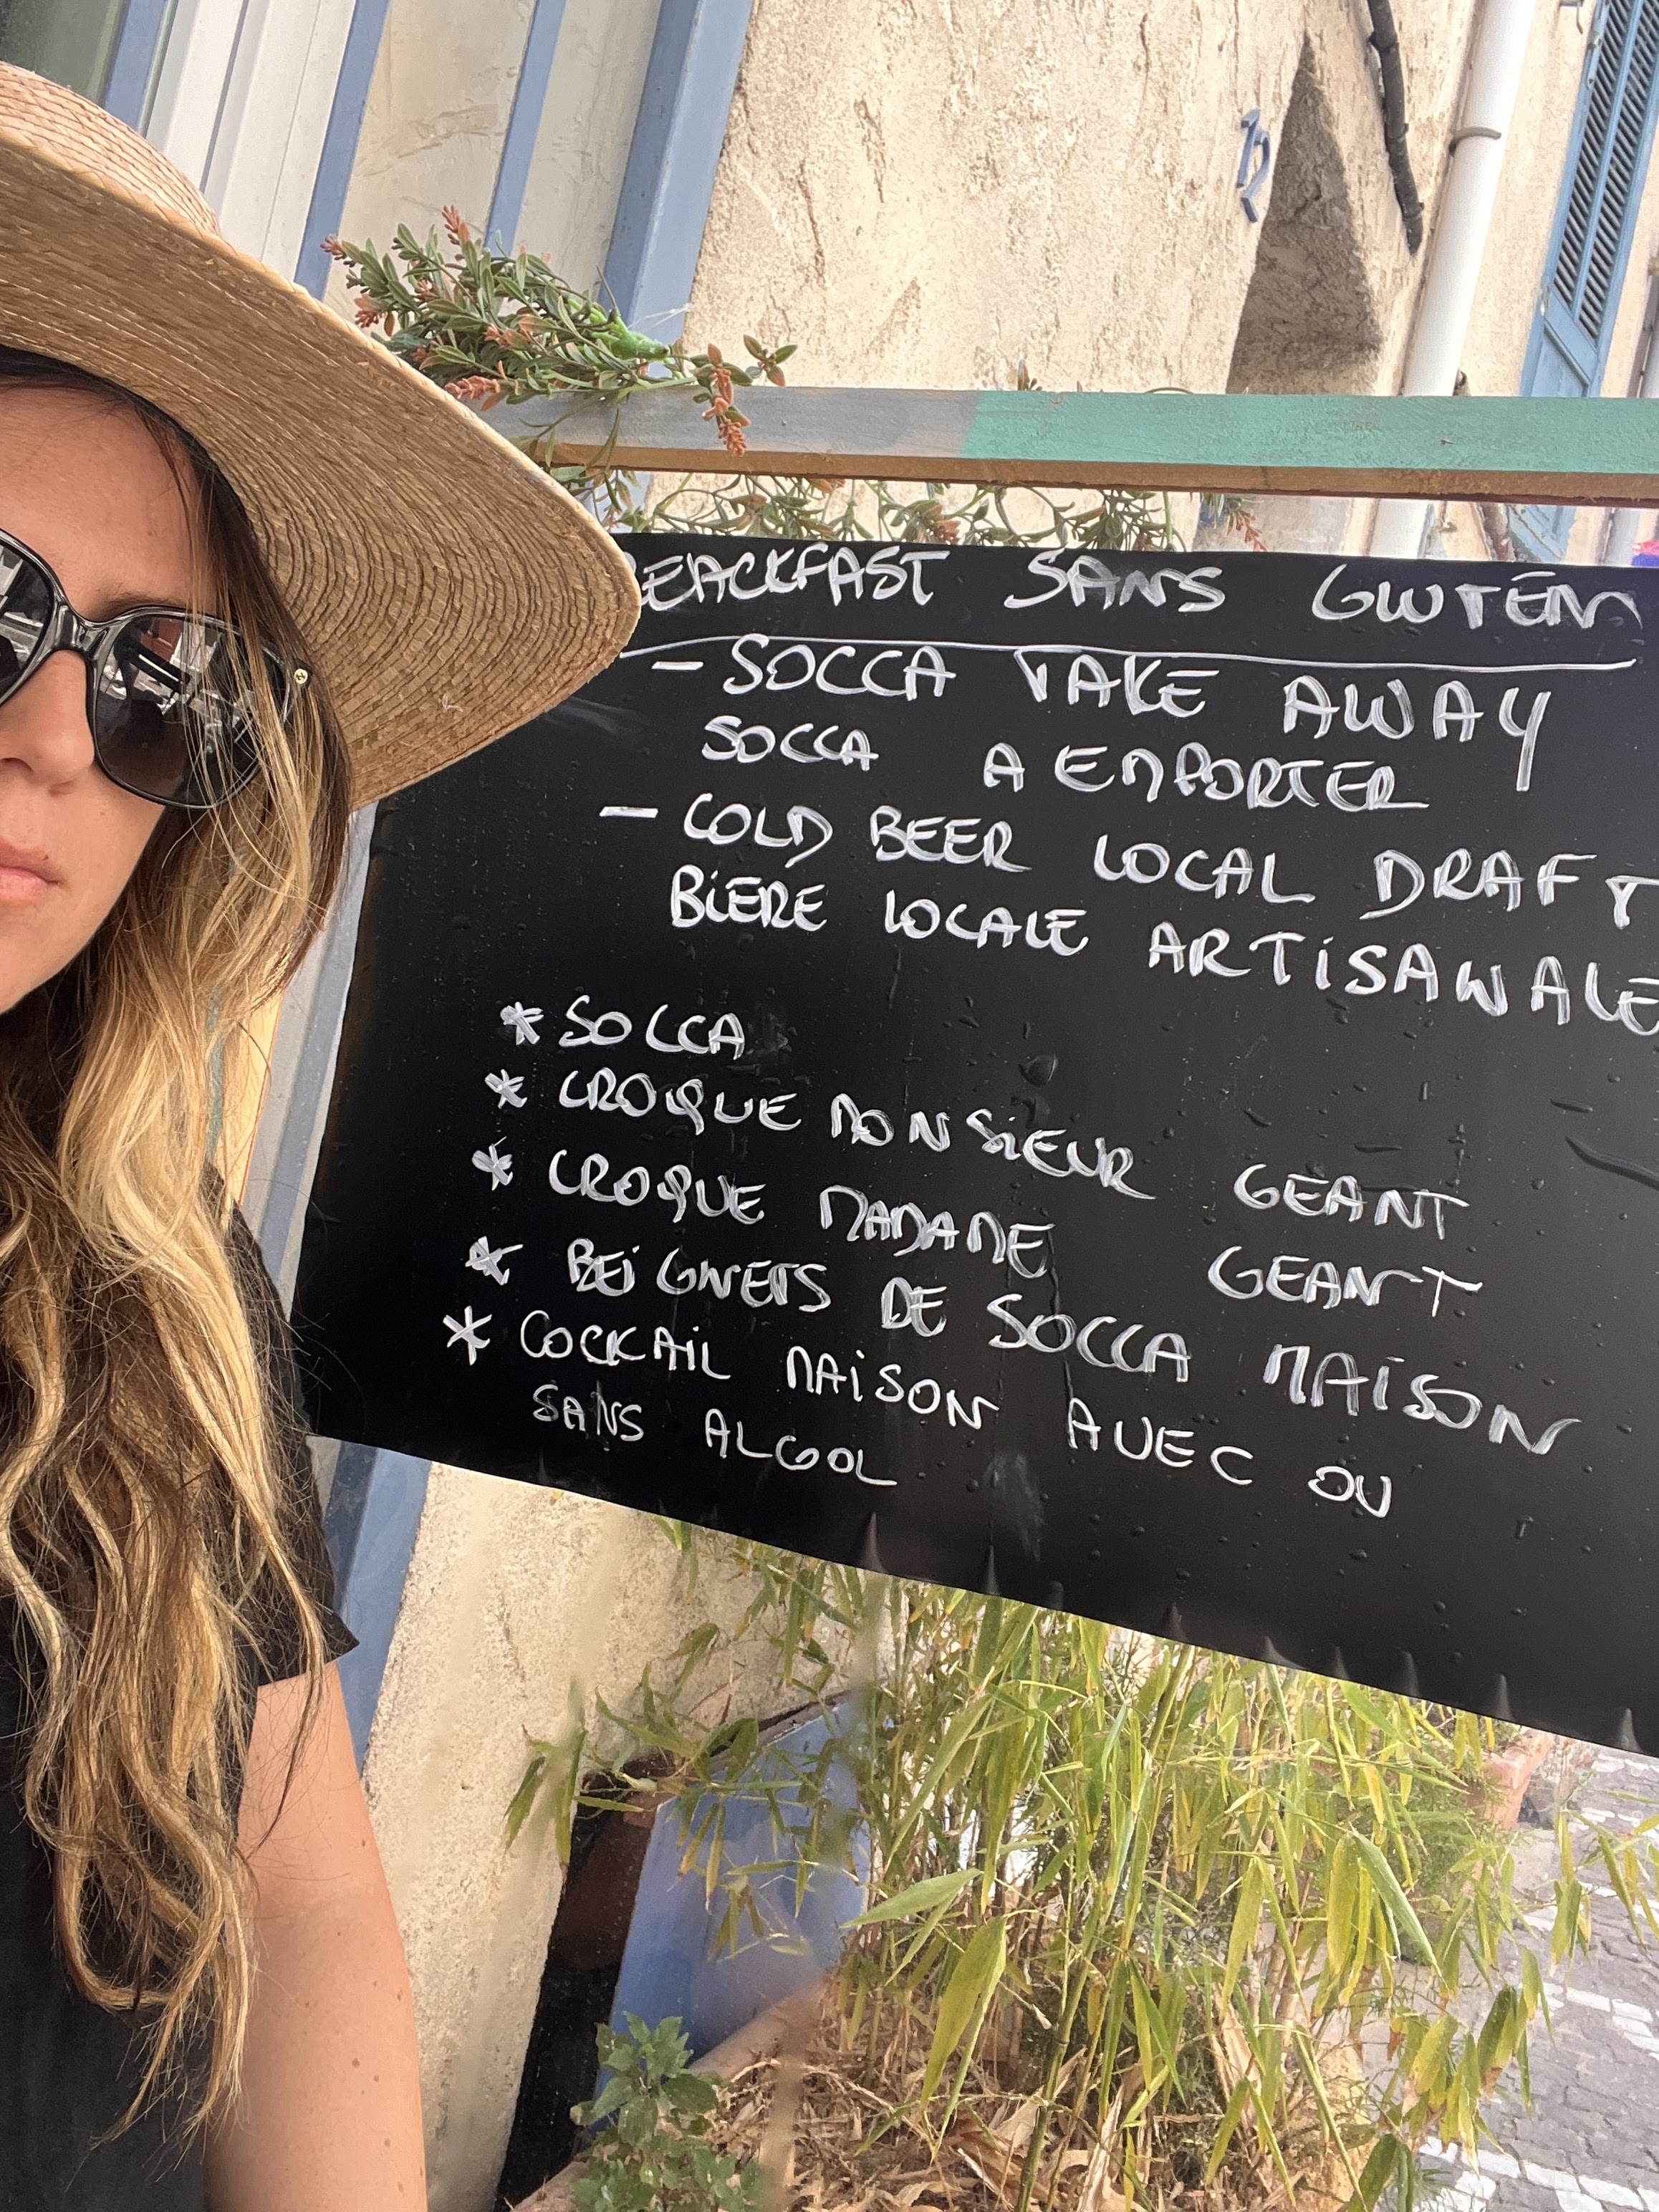 REACKFAST SANS GLUTEN
- SOCCA TAKE AWAY
SOCCA A EMPORTER
- COLD BEER LOCAL DRAFT
BIERE LOCALE ARTISANALE
* SOCCA
* CROQUE MONSIEUR GEANT
* CROQUE MADAME GEANT
* BEIGNETS DE SOCCA MAISON
* COCKAIL MAISON AVEC OU
SANS ALGOL
12